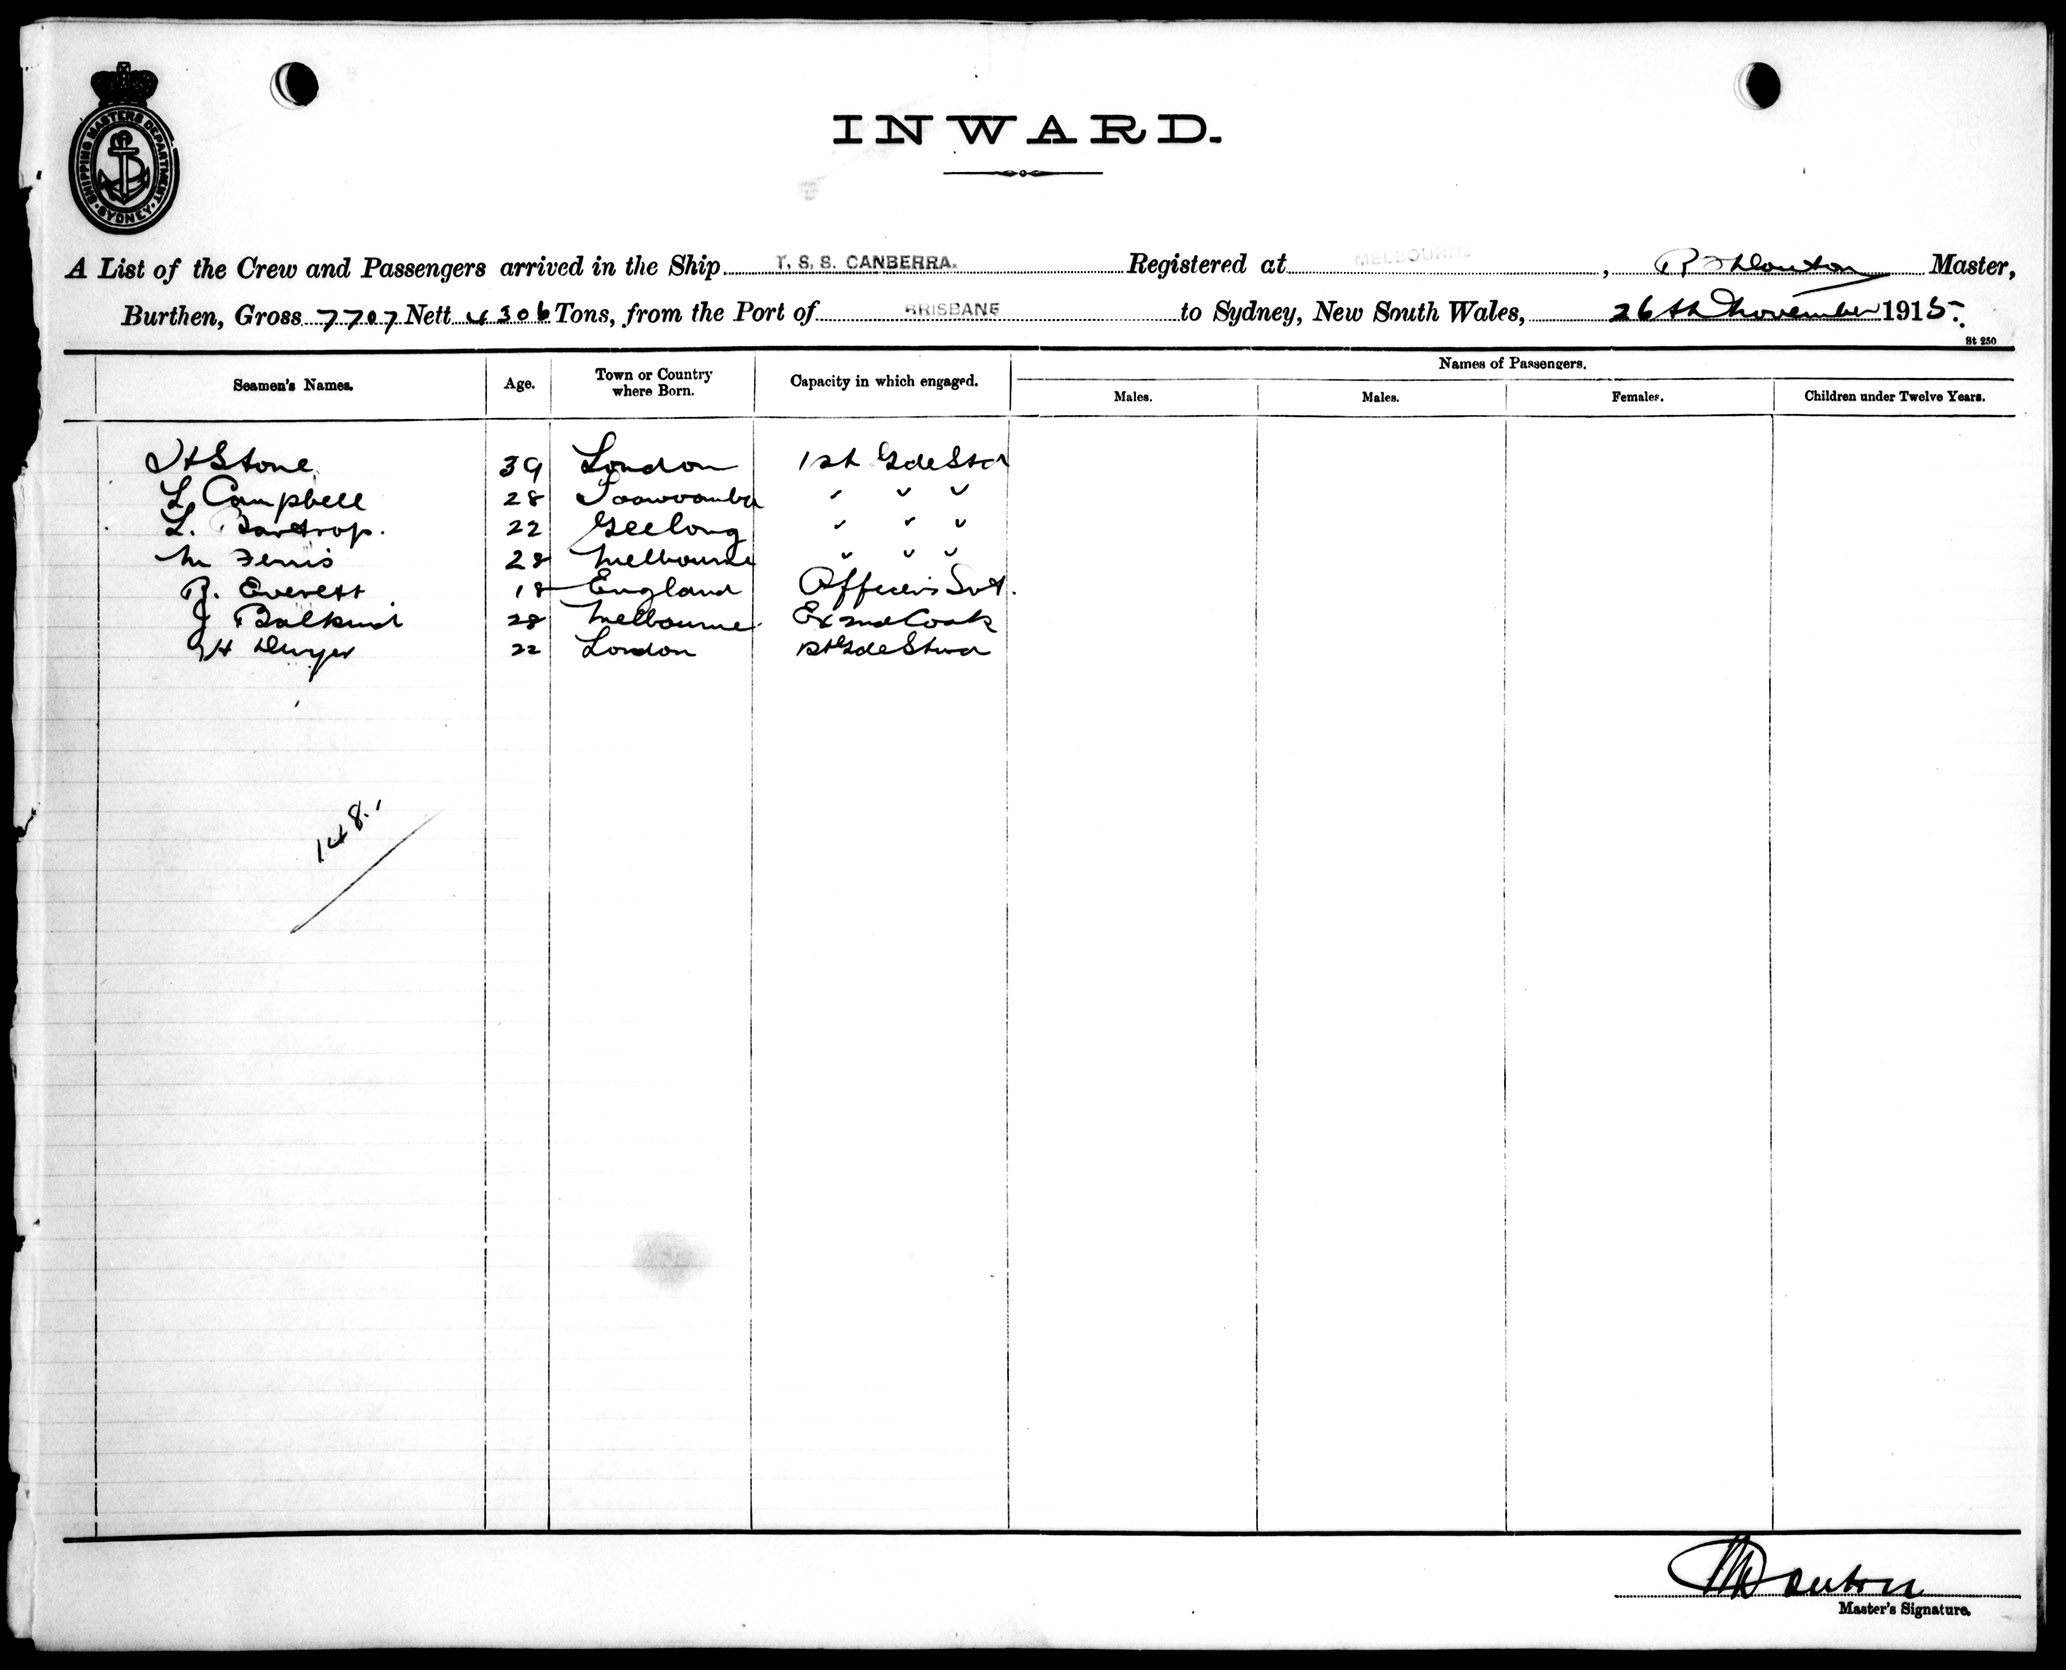 SHIPPING MASTERS DEPARTMENT
SYDNEY
INWARD.
A List of the Crew and Passengers arrived in the Ship T. S. S. CANBERRA. Registered at MELBOURNE, Master,
Burthen, Gross 7707 Nett 4306 Tons, from the Port of BRISBANE to Sydney, New South Wales, 26th November 1915.
St 250
Seamen's Names. Age. Town or Country where Born. Capacity in which engaged. Names of Passengers.
Males. Males. Females. Children under Twelve Years.
H Stone 39 London 1st Gde Std
L. Campbell 28 Toowoomba " " "
L. Bartrop. 22 Geelong " " "
M Ferris 28 Melbourne " " "
R. Everett 18 England Officers Svt.
J Balkind 28 Melbourne Ex 2nd Cook
H Dwyer 22 London 1st Gde Stwd
148.
Master's Signature.